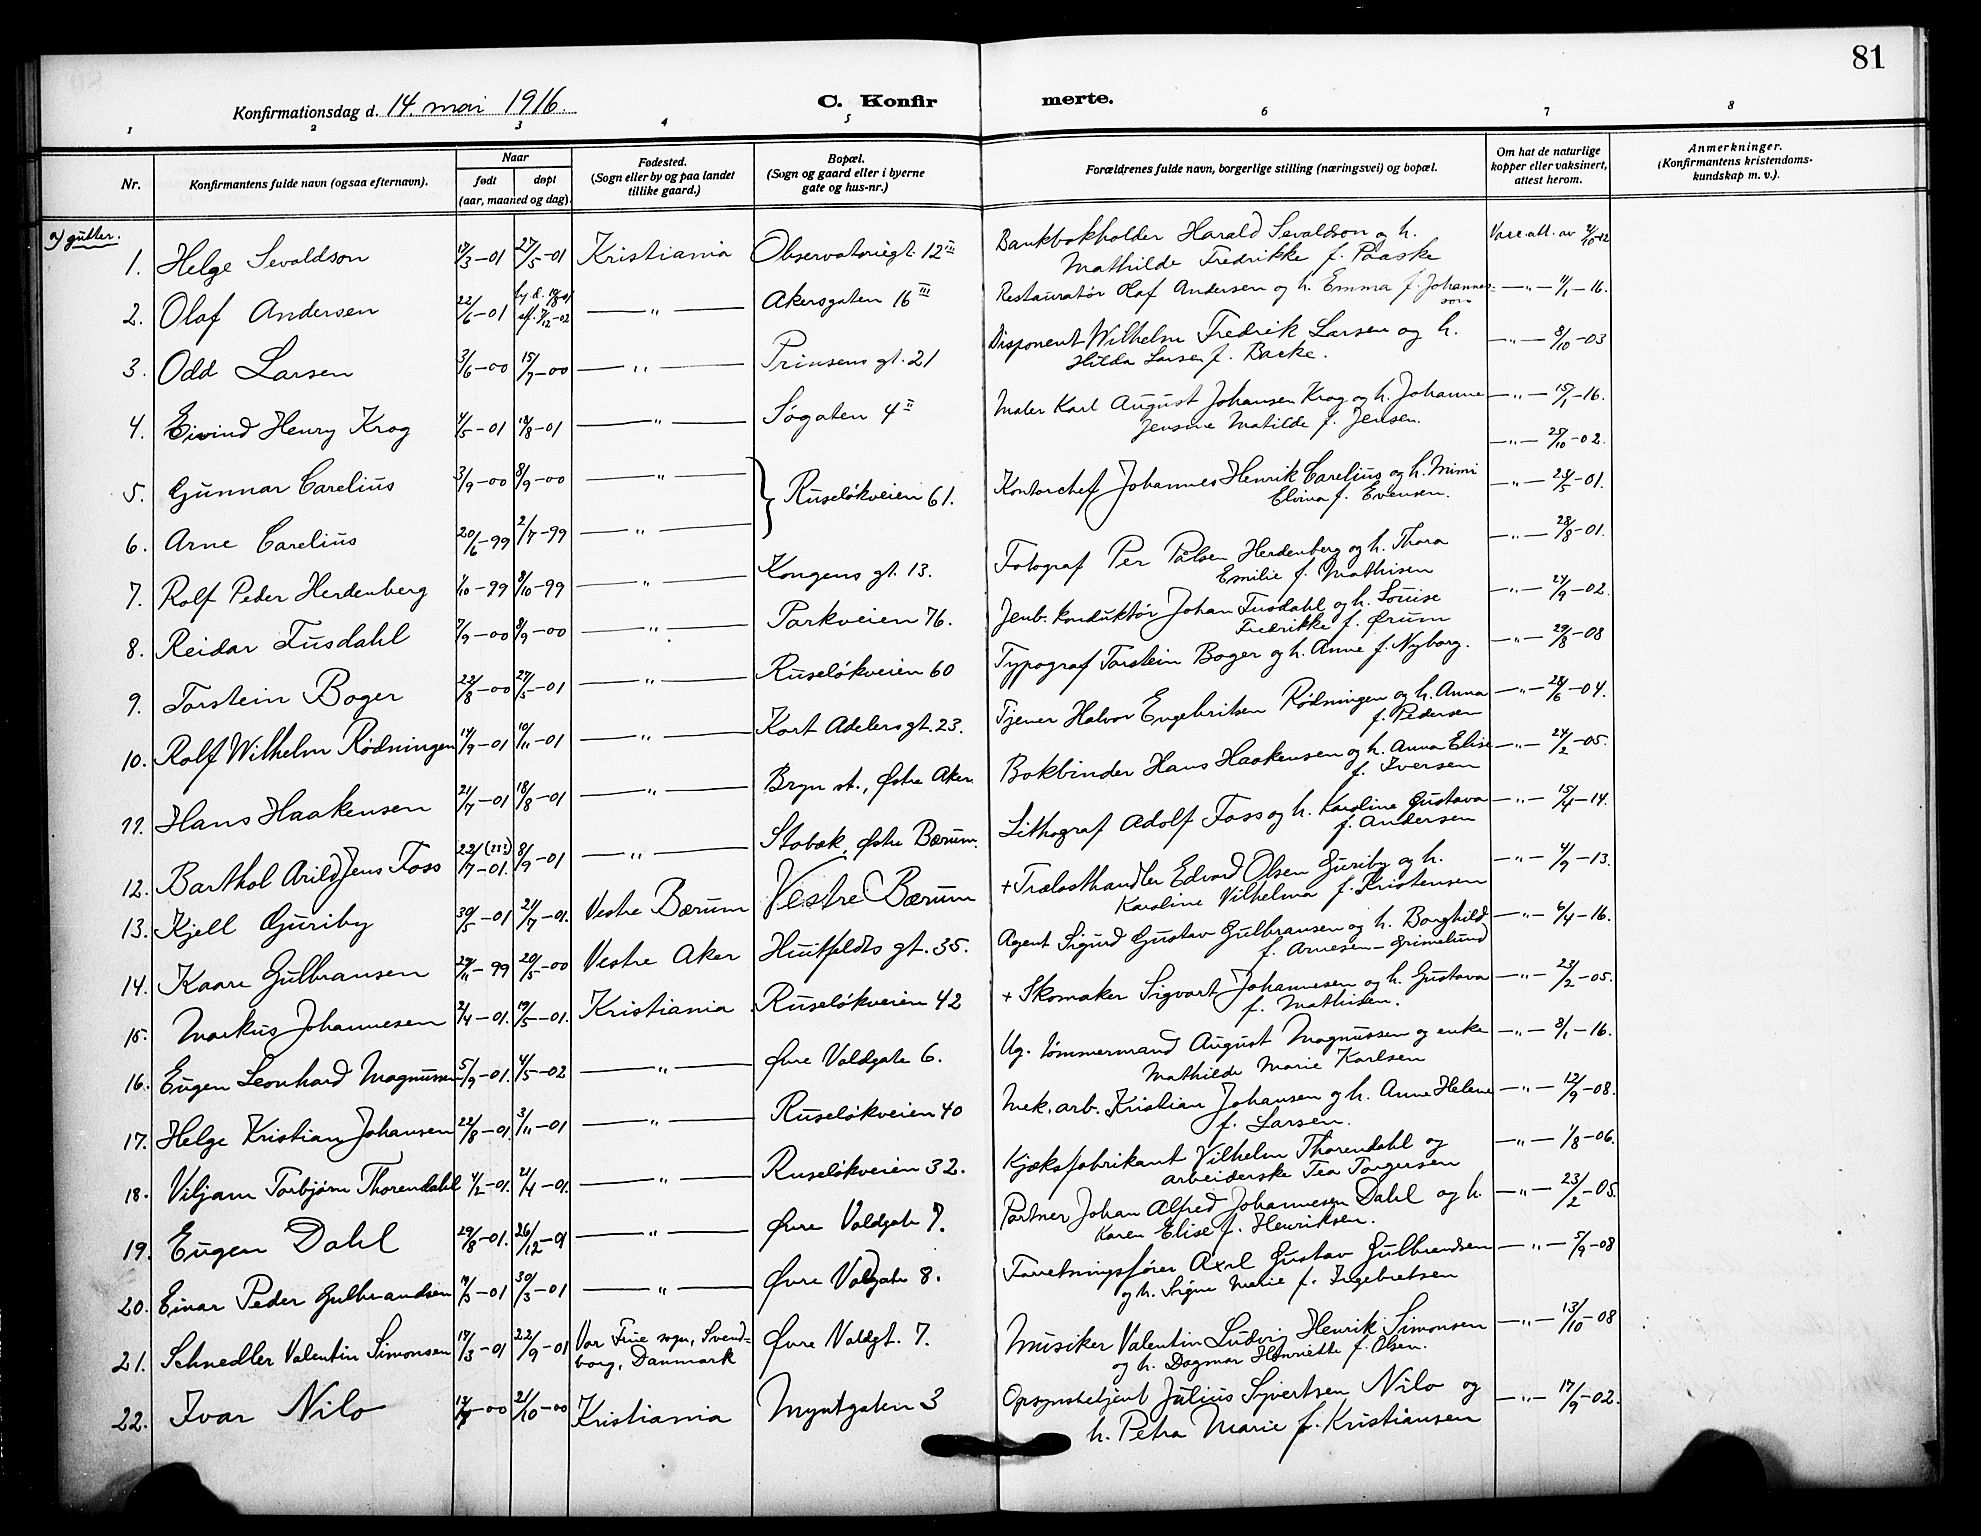 81
Konfirmationsdag d. 14. mai 1916.
C. Konfirmerte.
1 2 3 4 5 6 7 8
Nr.
Konfirmantens fulde navn (ogsaa efternavn).
Naar
født døpt
(aar, maaned og dag).
Fødested.
(Sogn eller by og paa landet
tillike gaard.)
Bopæl.
(Sogn og gaard eller i byerne
gate og hus-nr.)
Forældrenes fulde navn, borgerlige stilling (næringsvei) og bopæl.
Om hat de naturlige
kopper eller vaksinert,
attest herom.
Anmerkninger.
(Konfirmantens kristendoms-
kundskap m. v.).
a) gutter.
1. Helge Sevaldson 27/5-01 Kristiania Observatoriegt. 12 III Bankbokholder Harald Sevaldson og h.
Mathilde Fredrikke f. Paaske
2. Olaf Andersen 22/6-01 —„— Akersgaten 16 III Restauratør Olaf Andersen og h. Emma f. Johannes-
son —„— 11/1-16.
3. Odd Larsen 3/6-00 15/7-00 —„— Prinsens gt. 21 Disponent Wilhelm Fredrik Larsen og h.
Hilda Larsen f. Backe. —„— 8/10-03
4. Eivind Henry Krog 4/5-01 18/8-01 —„— Søgaten 4 II Maler Karl August Johansen Krog og h. Johanne
Jensine Matilde f. Jensen. —„— 15/1-16.
—„— 25/10-02.
5. Gunnar Carelius 3/9-00 8/9-00 —„— } Ruseløkveien 61. Kontorchef Johannes Henrik Carelius og h. Mimi
Elvina f. Evensen. —„— 23/5-01.
6. Arne Carelius 20/6-99 2/7-99 —„—
—„— 28/8-01.
7. Rolf Peder Herdenberg 1/10-99 8/10-99 —„— Kongens gt. 13. Fotograf Per Pålsen Herdenberg og h. Thora
Emilie f. Mathisen
8. Reidar Tusdahl 7/9-00 8/9-00 —„— Parkveien 76. Jenb. konduktør Johan Tusdahl og h. Louise
Fredrikke f. Ørum —„— 24/9-02.
9. Torstein Boger 22/8-00 27/5-01 —„— Ruseløkveien 60 Typograf Torstein Boger og h. Anne f. Nyborg. —„— 29/8-08
10. Rolf Wilhelm Rødningen 14/9-01 10/11-01 —„— Kort Adelersgt. 23. Tjener Halvor Engebritsen Rødningen og h. Anna
f. Pedersen —„— 28/6-04.
11. Hans Haakensen 21/7-01 18/8-01 —„— Bryn st., Østre Aker Bokbinder Hans Haakensen og h. Anna Elise
f. Iversen —„— 24/2-05.
12. Barthol Arild Jens Foss 22/7-01. 8/9-01 —„— Stabæk, Østre Bærum. Lithograf Adolf Foss og h. Karoline Gustava
f. Andersen —„— 15/4-14.
13. Kjell Guriby 30/5-01 21/7-01. Vestre Bærum Vestre Bærum + Trælasthandler Edvard Olsen Guriby og h.
Karoline Vilhelma f. Kristensen —„— 4/9-13.
14. Kaare Gulbransen 29/11-99 20/5-00 Vestre Aker Huitfeldts gt. 35. Agent Sigurd Gustav Gulbransen og h. Borghild
f. Arnesen-Grimelund —„— 6/4-16.
15. Markus Johannesen 2/4-01. 19/5-01. Kristiania Ruseløkveien 42 + Skomaker Sigvart Johannesen og h. Gustava
f. Mathisen. —„— 23/2-05.
16. Eugen Leonhard Magnussen 5/9-01. 4/5-02 —„— Øvre Voldgate 6. Ug. tømmermand August Magnussen og enke
Mathilde Marie Karlsen —„— 8/1-16.
17. Helge Kristian Johansen 22/8-01. 3/11-01 —„— Ruseløkveien 40 Mek. arb. Kristian Johansen og h. Anne Helene
f. Larsen. —„— 12/9-08.
18. Viljam Torbjørn Thorendahl 4/2-01. 21/4-01. —„— Ruseløkveien 32. Kjæksfabrikant Vilhelm Thorendahl og
arbeiderske Tea Torgersen —„— 1/8-06.
19. Eugen Dahl 29/8-01. 26/12-01 —„— Øvre Voldgate 7. Portner Johan Alfred Johannesen Dahl og h.
Karen Elise f. Henriksen. —„— 23/2-05.
20. Einar Peder Gulbrandsen 30/3-01 —„— Øvre Voldgate 8. Forretningsfører Axel Gustav Gulbrandsen
og h. Signe Marie f. Ingebretsen —„— 5/9-08
21. Schnedler Valentin Simonsen 17/3-01 22/9-01 Vor Frue sogn, Svend-
borg, Danmark Øvre Voldgt. 7. Musiker Valentin Ludvig Henrik Simonsen
og h. Dagmar Henriette f. Olsen. —„— 13/10-08
22. Ivar Nilo 21/10-00 Kristiania Myntgaten 3 Opsynsbetjent Julius Syvertsen Nilo og
h. Petra Marie f. Kristiansen —„— 17/9-02.